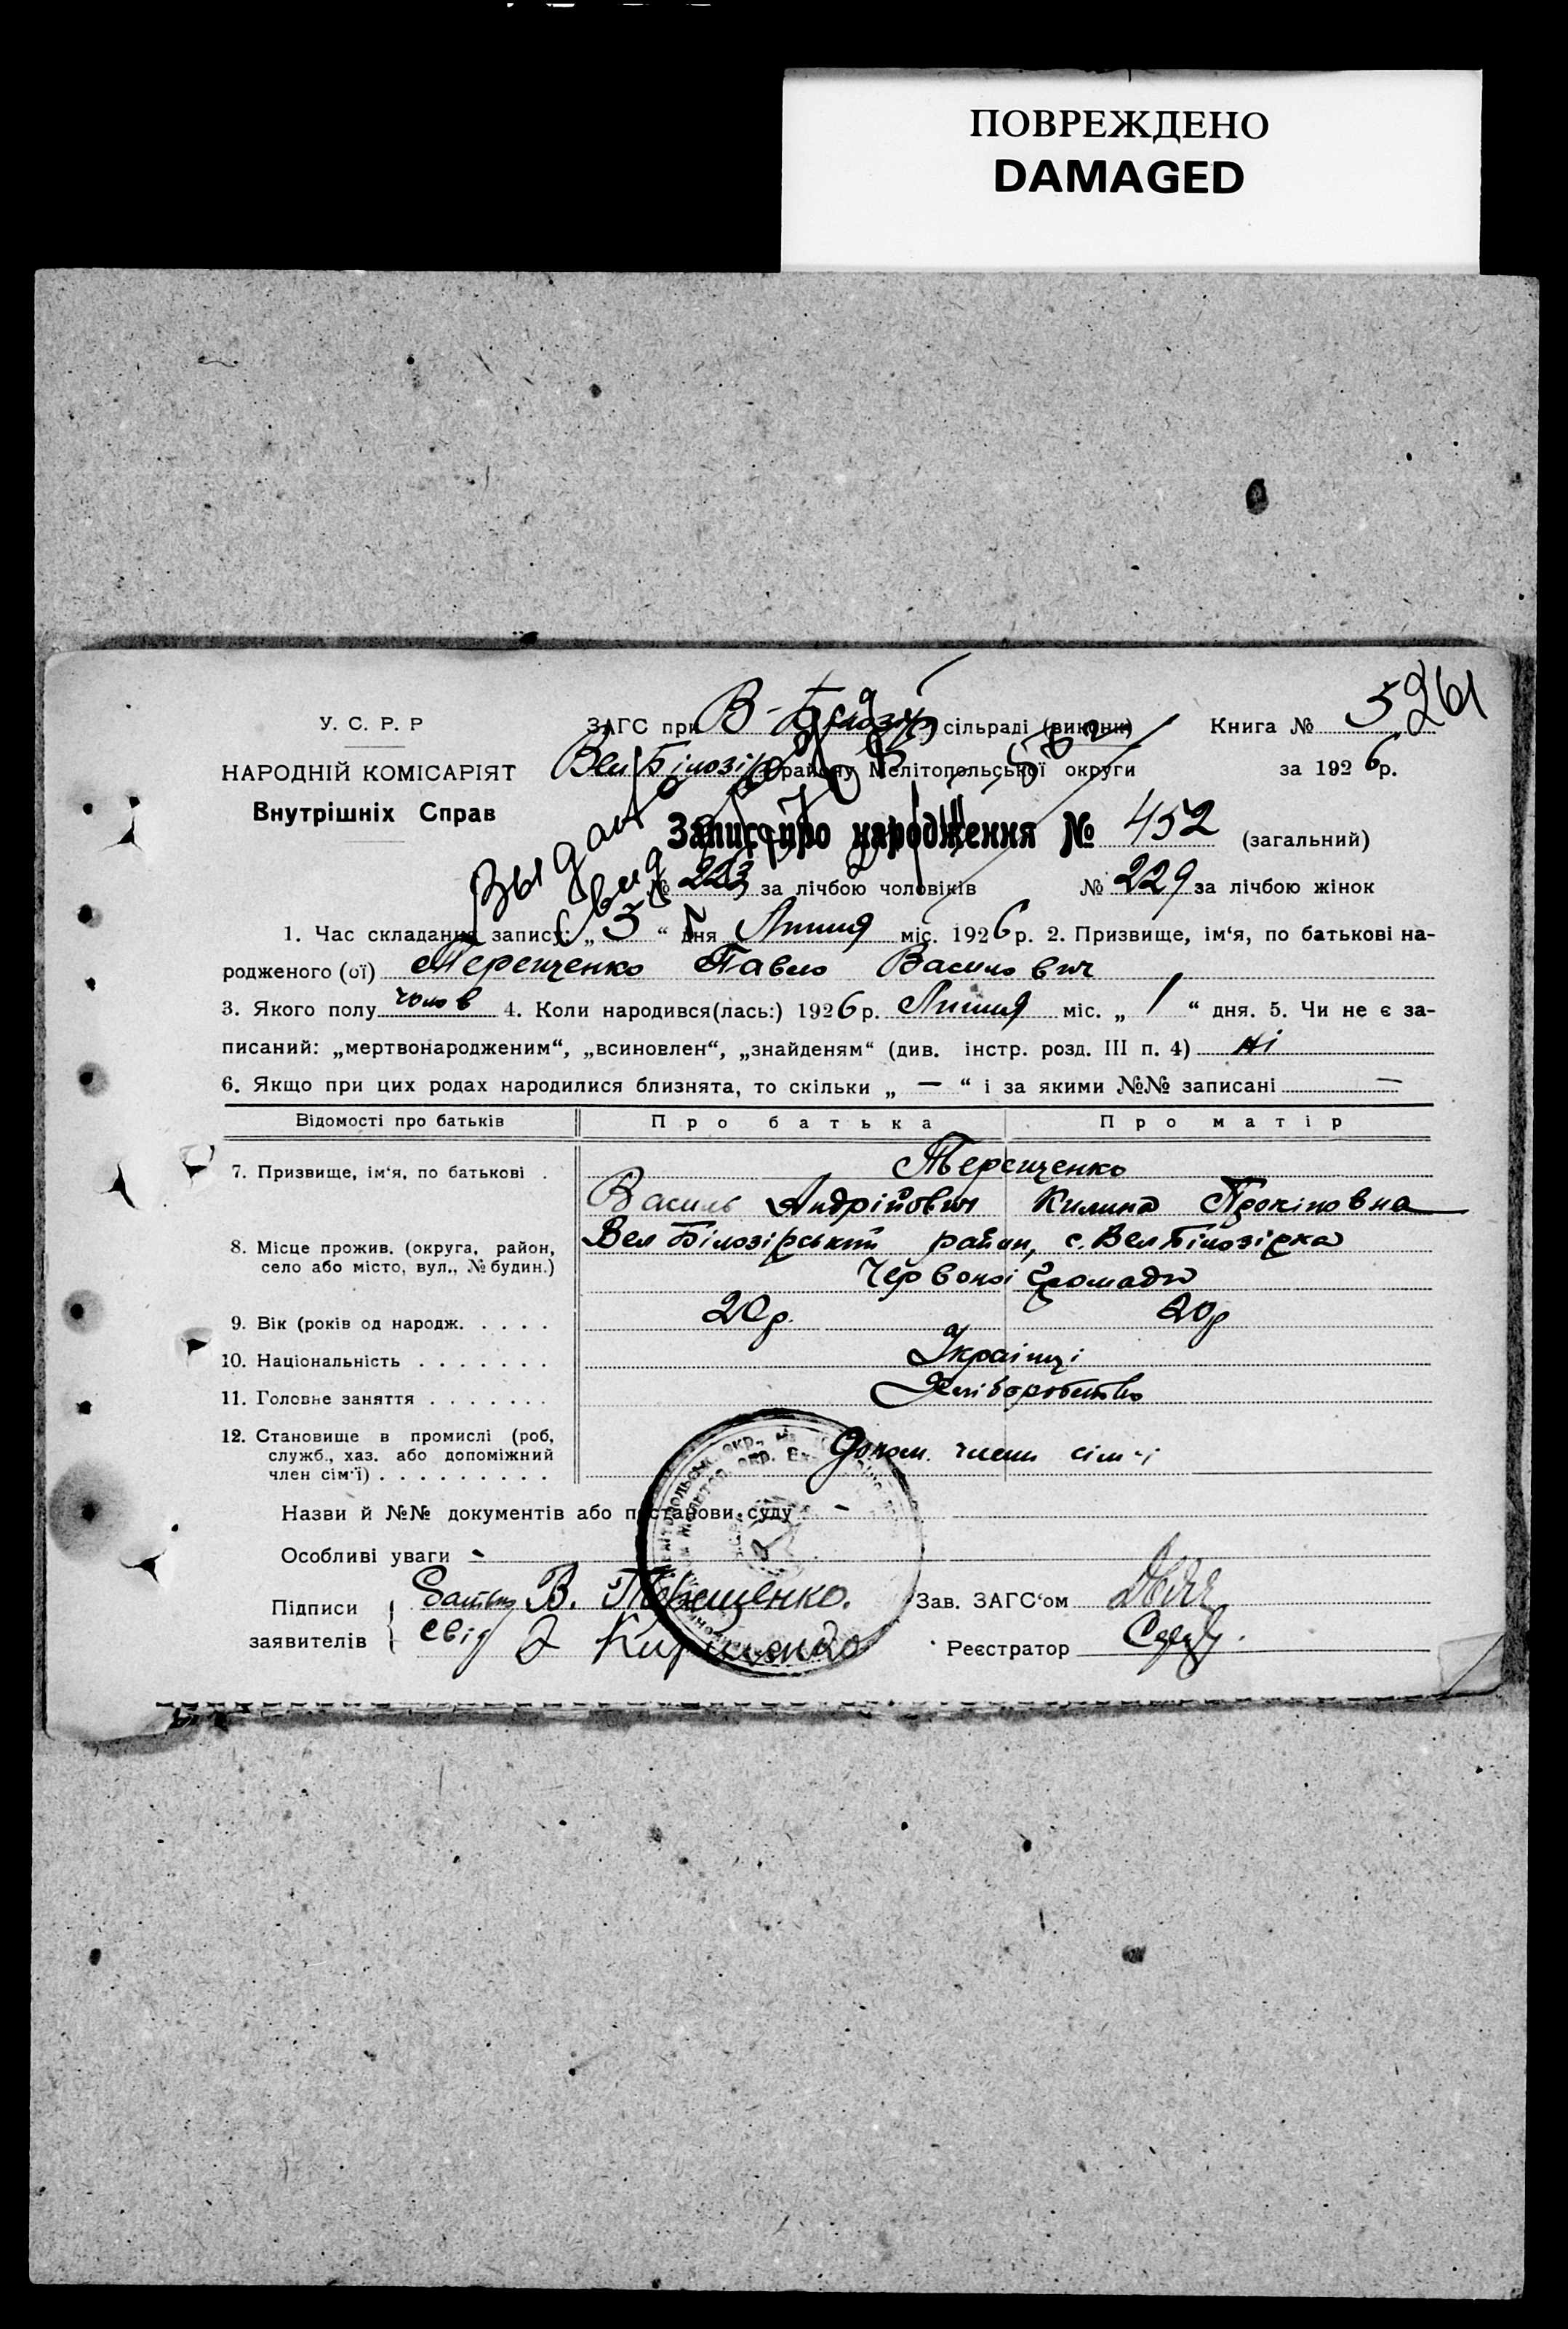 ПОВРЕЖДЕНО
DAMAGED
261
У. С. Р. Р
ЗАГС при В-Білозір сільраді (виконк) Книга № 5
НАРОДНІЙ КОМІСАРІЯТ
Вел Білозір району Мелітопольської округи за 1926 р.
Внутрішніх Справ
Выдано
Запис про народження № 452 (загальний)
№ 223 за лічбою чоловіків № 229 за лічбою жінок
1. Час складання запису: „ 5 “ дня Липня міс. 1926 р. 2. Призвище, ім‘я, по батькові на-
родженого (ої) Терещенко Павло Васильович
3. Якого полу чолов 4. Коли народився(лась:) 1926 р. Липня міс. „ 1 “ дня. 5. Чи не є за-
писаний: „мертвонародженим“, „всиновлен“, „знайденям“ (див. інстр. розд. III п. 4) ні
6. Якщо при цих родах народилися близнята, то скільки „ — “ і за якими №№ записані —
Відомості про батьків Про батька Про матір
7. Призвище, ім‘я, по батькові . Терещенко
Василь Андрійович Килина Прокіповна
8. Місце прожив. (округа, район, село або місто, вул., № будин.) Вел Білозірський район, с. Вел Білозірка
Червоної громади
9. Вік (років од народж. . . . . 20 р. 20 р
10. Національність . . . . . . . Українці
11. Головне заняття . . . . . . . Хліборобство
12. Становище в промислі (роб,
служб., хаз. або допоміжний
член сім‘ї) . . . . . . . . . Допом. члени сім‘ї
Назви й №№ документів або постанови суду -
Особливі уваги -
Підписи заявителів { батько В. Терещенко. Зав. ЗАГС‘ом
свід Реєстратор